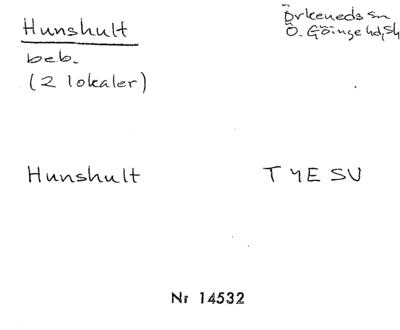 Hunshult
Örkeneds sn
Ö. Göinge hd, Sk
beb.
(2 lokaler)
Hunshult
T 4E SV
Nr 14532